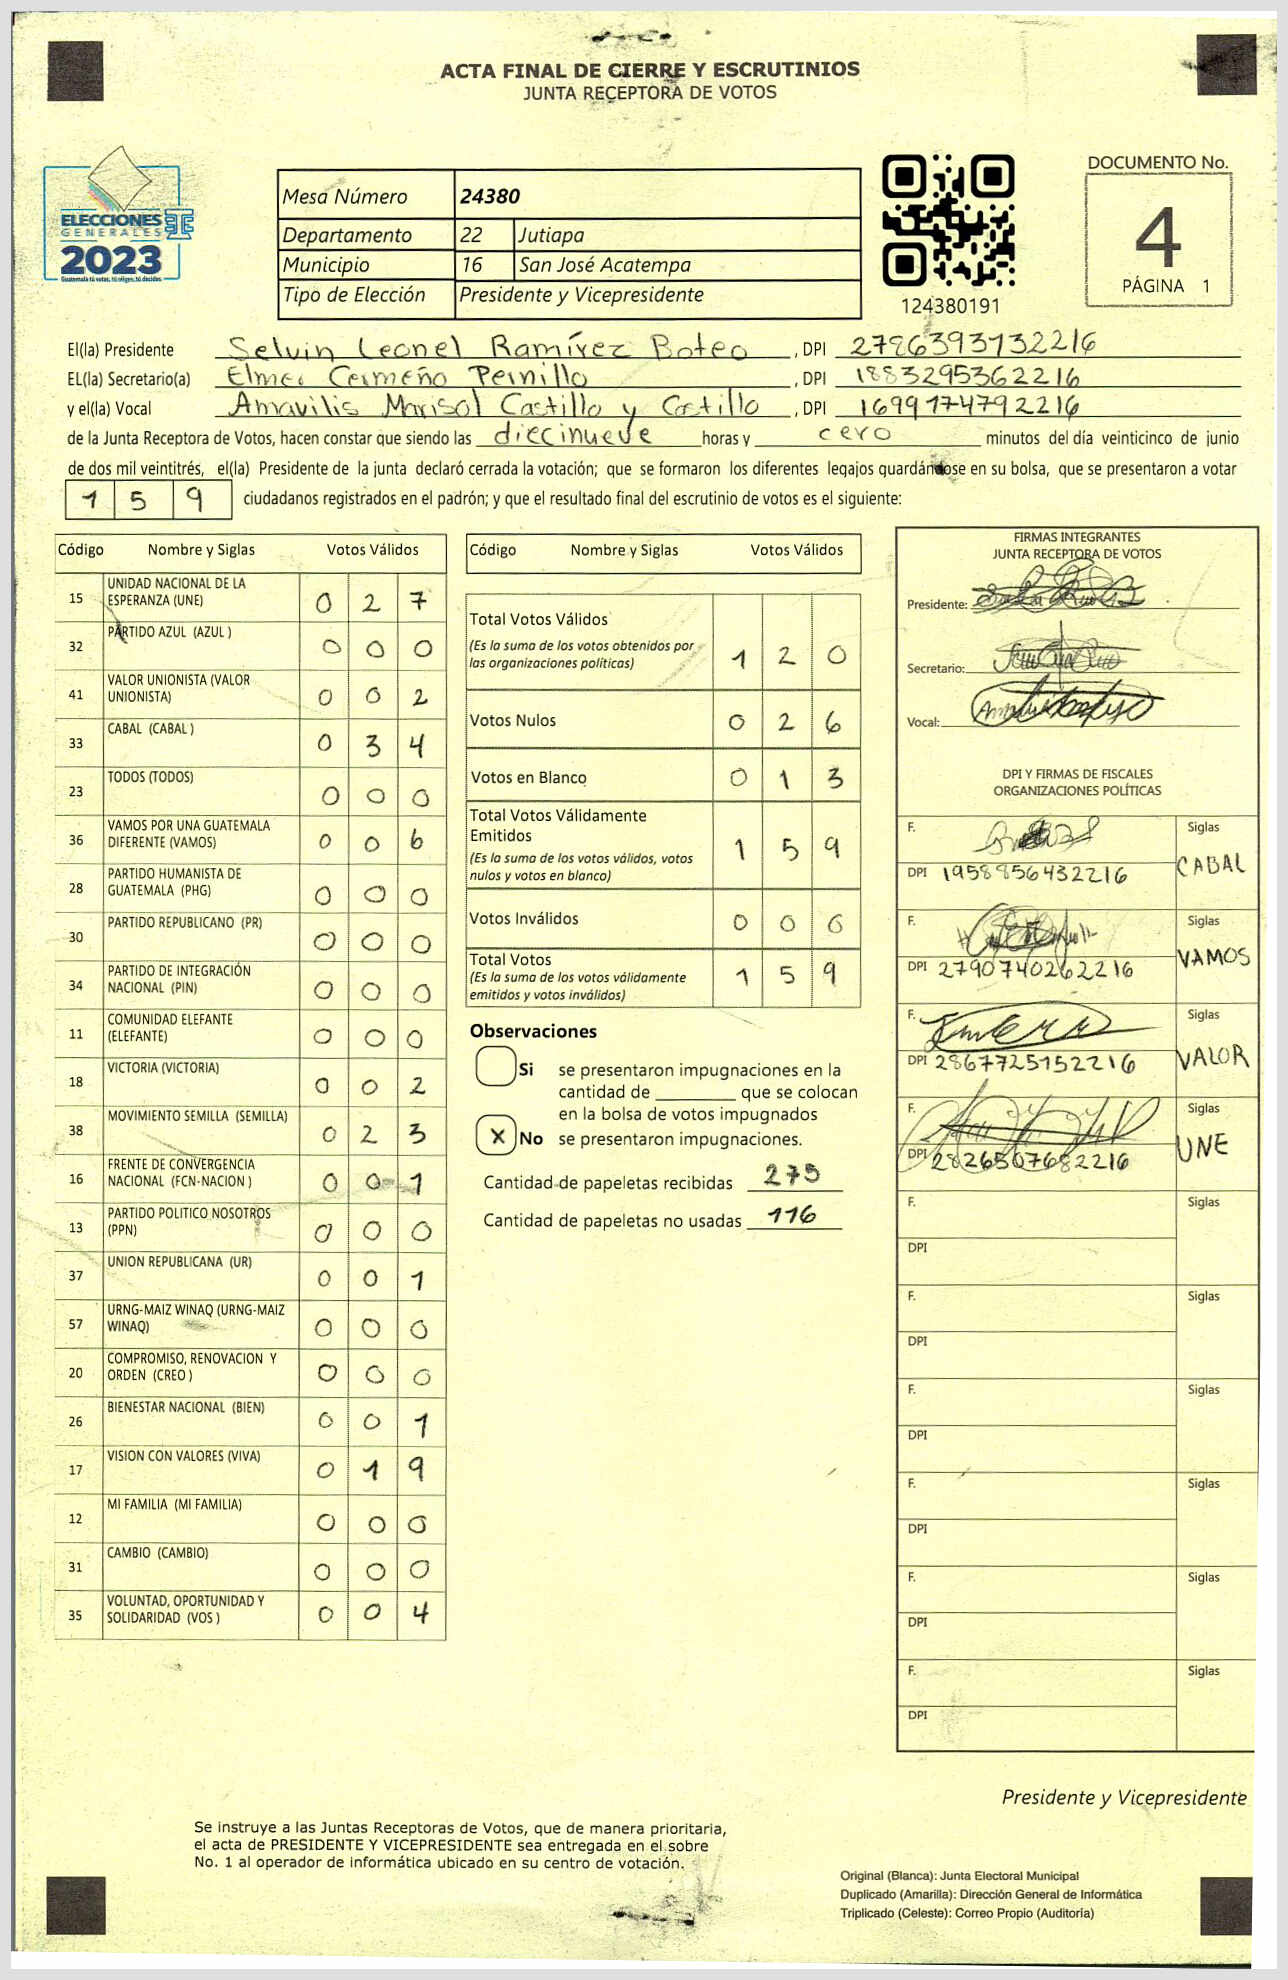 ACTA FINAL DE CIERRE Y ESCRUTINIOS
JUNTA RECEPTORA DE VOTOS
ELECCIONES
GENERALES
2023
Guatemala tú votas, tú eliges, tú decides.
Mesa Número 24380
Departamento 22 Jutiapa
Municipio 16 San José Acatempa
Tipo de Elección Presidente y Vicepresidente
124380191
DOCUMENTO No.
4
PÁGINA 1
El(la) Presidente Selvin Leonel Ramírez Boteo , DPI 2786393132216
EL(la) Secretario(a) Elmer Cermeño Pernillo , DPI 1883295362216
y el(la) Vocal Amavilis Marisol Castillo y Castillo , DPI 1699174792216
de la Junta Receptora de Votos, hacen constar que siendo las diecinueve horas y cero minutos del día veinticinco de junio
de dos mil veintitrés, el(la) Presidente de la junta declaró cerrada la votación; que se formaron los diferentes legajos guardándose en su bolsa, que se presentaron a votar
1 5 9 ciudadanos registrados en el padrón; y que el resultado final del escrutinio de votos es el siguiente:
Código Nombre y Siglas Votos Válidos
15 UNIDAD NACIONAL DE LA ESPERANZA (UNE) 0 2 7
32 PARTIDO AZUL (AZUL ) 0 0 0
41 VALOR UNIONISTA (VALOR UNIONISTA) 0 0 2
33 CABAL (CABAL ) 0 3 4
23 TODOS (TODOS) 0 0 0
36 VAMOS POR UNA GUATEMALA DIFERENTE (VAMOS) 0 0 6
28 PARTIDO HUMANISTA DE GUATEMALA (PHG) 0 0 0
30 PARTIDO REPUBLICANO (PR) 0 0 0
34 PARTIDO DE INTEGRACIÓN NACIONAL (PIN) 0 0 0
11 COMUNIDAD ELEFANTE (ELEFANTE) 0 0 0
18 VICTORIA (VICTORIA) 0 0 2
38 MOVIMIENTO SEMILLA (SEMILLA) 0 2 3
16 FRENTE DE CONVERGENCIA NACIONAL (FCN-NACION ) 0 0 1
13 PARTIDO POLITICO NOSOTROS (PPN) 0 0 0
37 UNION REPUBLICANA (UR) 0 0 1
57 URNG-MAIZ WINAQ (URNG-MAIZ WINAQ) 0 0 0
20 COMPROMISO, RENOVACION Y ORDEN (CREO ) 0 0 0
26 BIENESTAR NACIONAL (BIEN) 0 0 1
17 VISION CON VALORES (VIVA) 0 1 9
12 MI FAMILIA (MI FAMILIA) 0 0 0
31 CAMBIO (CAMBIO) 0 0 0
35 VOLUNTAD, OPORTUNIDAD Y SOLIDARIDAD (VOS ) 0 0 4
Código Nombre y Siglas Votos Válidos
Total Votos Válidos
(Es la suma de los votos obtenidos por
las organizaciones políticas) 1 2 0
Votos Nulos 0 2 6
Votos en Blanco 0 1 3
Total Votos Válidamente
Emitidos 1 5 9
(Es la suma de los votos válidos, votos
nulos y votos en blanco)
Votos Inválidos 0 0 0
Total Votos
(Es la suma de los votos válidamente
emitidos y votos inválidos) 1 5 9
Observaciones
Si se presentaron impugnaciones en la
cantidad de ________ que se colocan
en la bolsa de votos impugnados
X No se presentaron impugnaciones.
Cantidad de papeletas recibidas 275
Cantidad de papeletas no usadas 116
FIRMAS INTEGRANTES
JUNTA RECEPTORA DE VOTOS
Presidente:
Secretario:
Vocal:
DPI Y FIRMAS DE FISCALES
ORGANIZACIONES POLÍTICAS
F. Siglas
DPI 1958856432216 CABAL
F. Siglas
DPI 2790740262216 VAMOS
F. Siglas
DPI 2867725152216 VALOR
F. Siglas
DPI 2826507682216 UNE
F. Siglas
DPI
F. Siglas
DPI
F. Siglas
DPI
F. Siglas
DPI
F. Siglas
DPI
F. Siglas
DPI
Presidente y Vicepresidente
Se instruye a las Juntas Receptoras de Votos, que de manera prioritaria,
el acta de PRESIDENTE Y VICEPRESIDENTE sea entregada en el sobre
No. 1 al operador de informática ubicado en su centro de votación.
Original (Blanca): Junta Electoral Municipal
Duplicado (Amarilla): Dirección General de Informática
Triplicado (Celeste): Correo Propio (Auditoría)